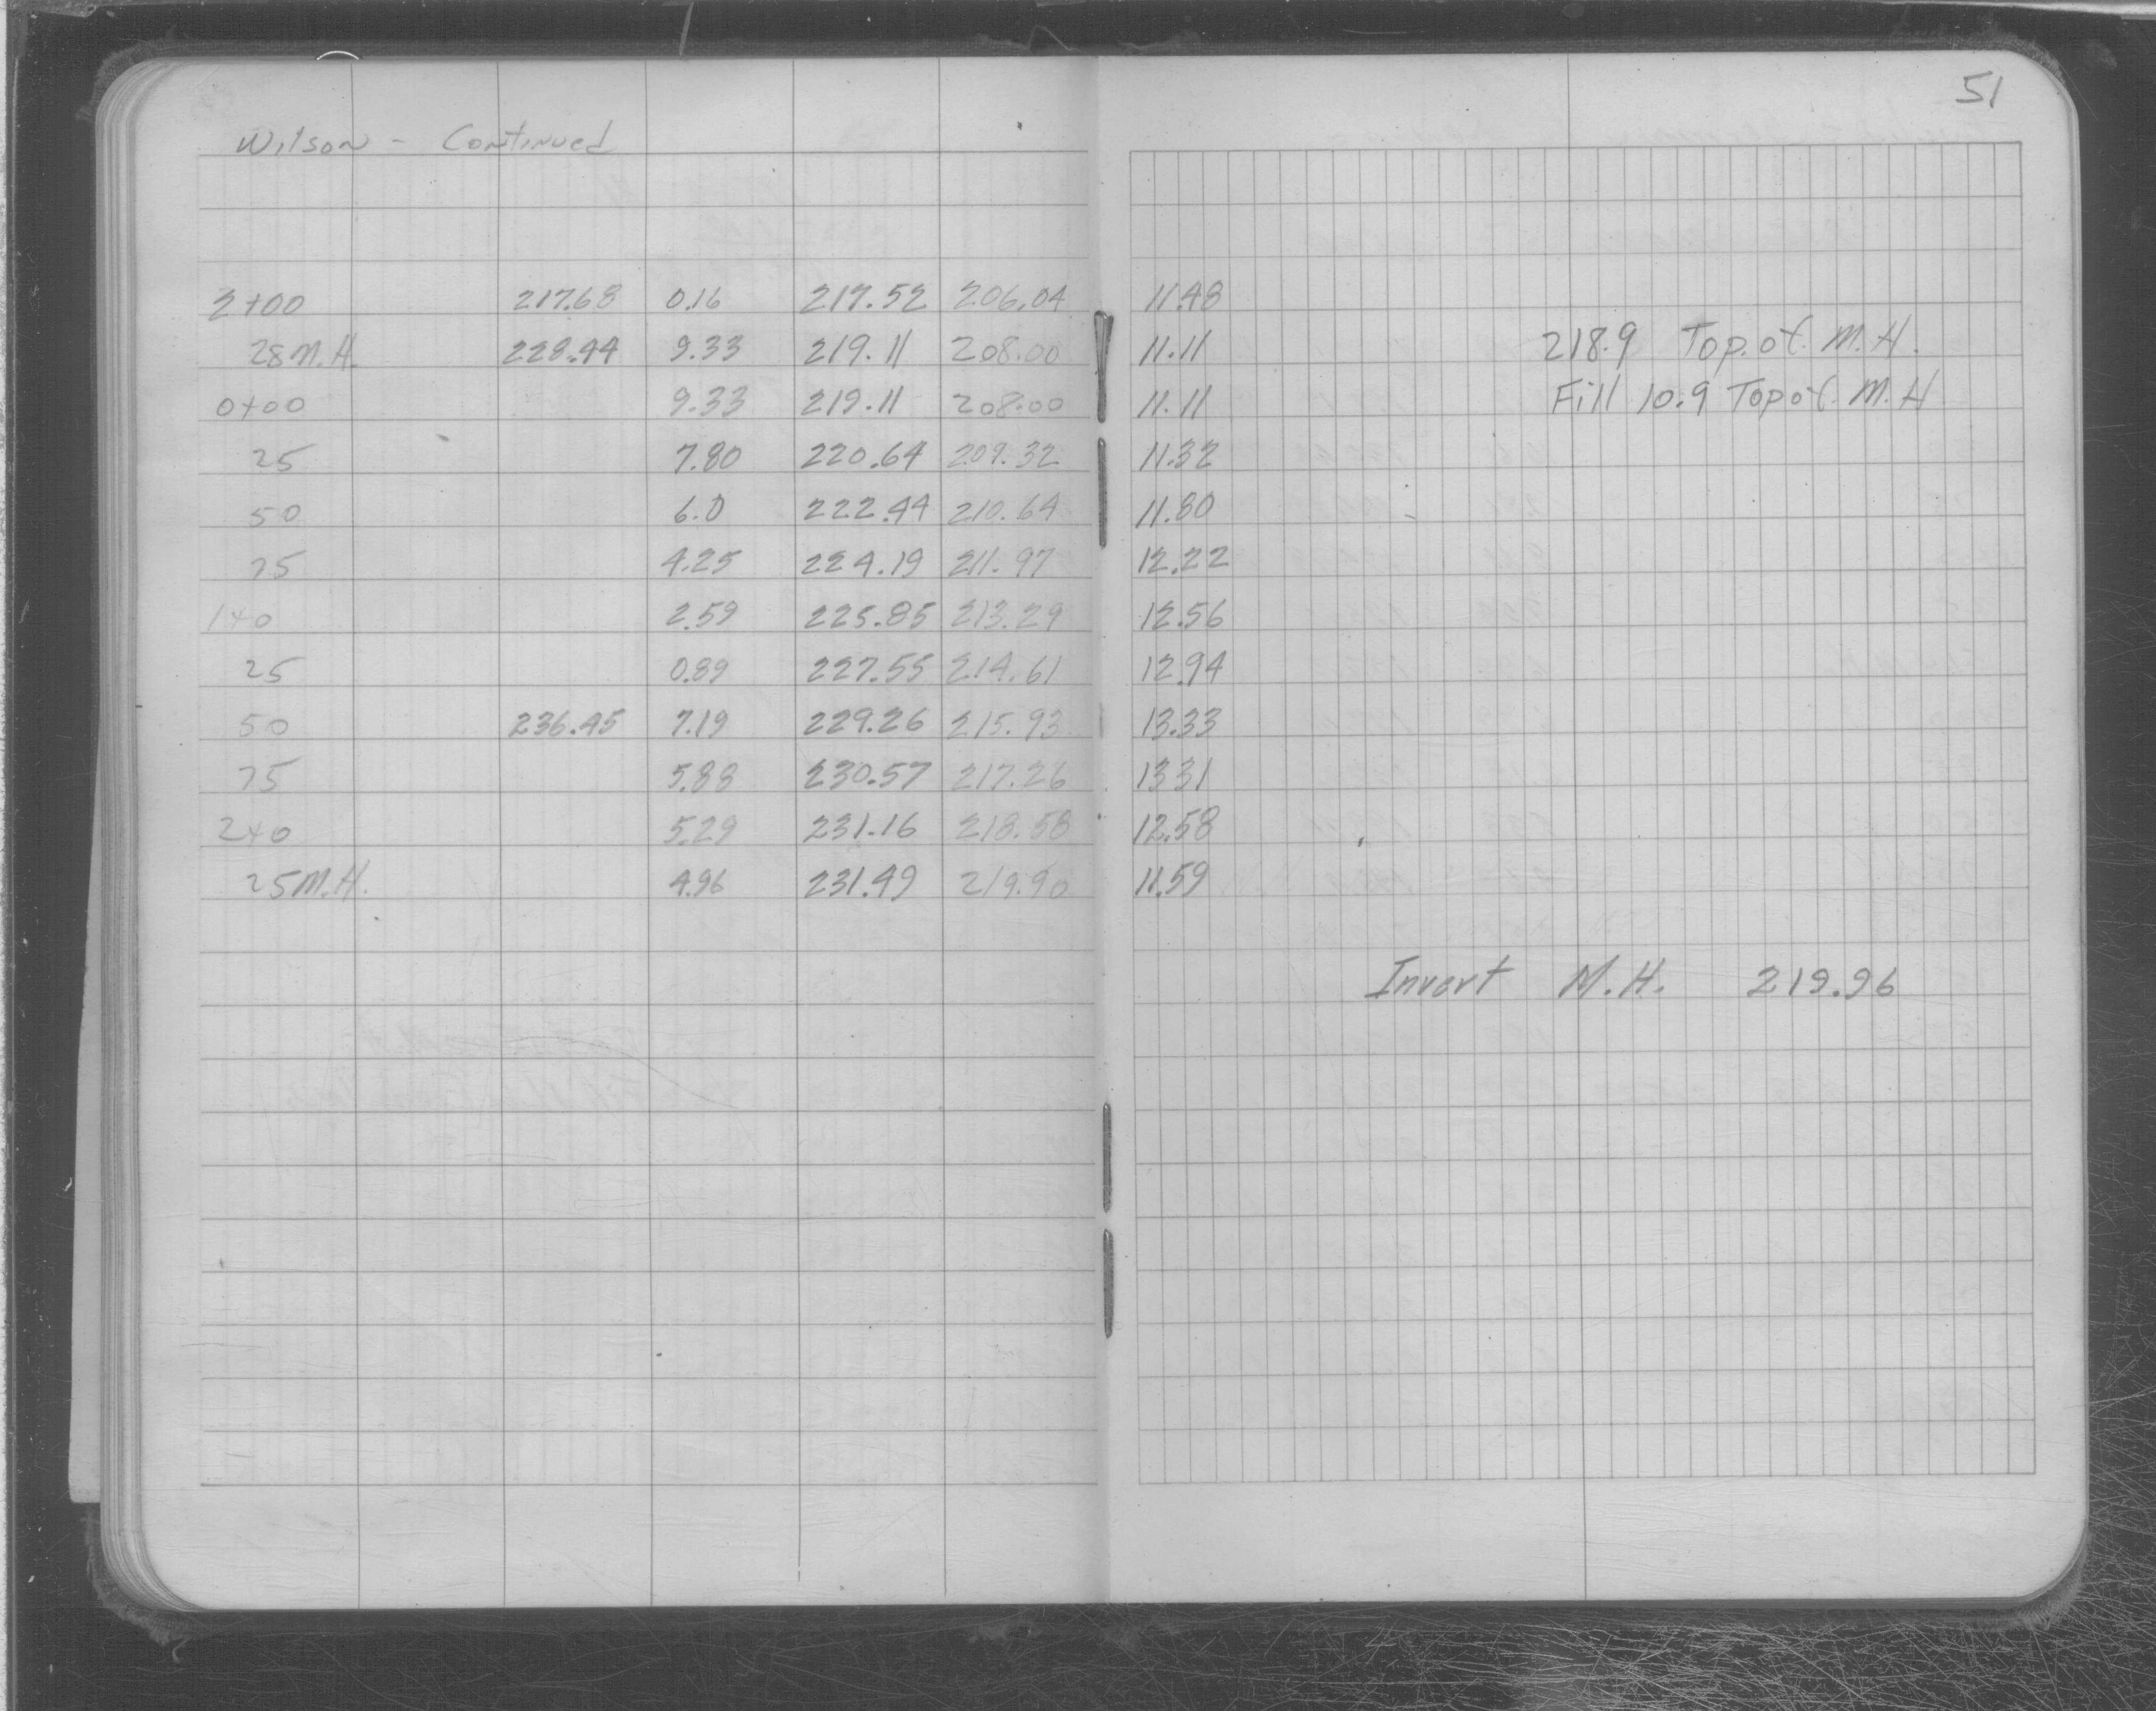 51
Wilson - Continued
2+00 217.68 0.16 217.52 206.04 11.48
28 M.H. 228.44 9.33 219.11 208.00 11.11 218.9 Top of M.H.
0+00 9.33 219.11 208.00 11.11 Fill 10.9 Top of M.H
25 7.80 220.64 209.32 11.32
50 6.0 222.44 210.64 11.80
75 4.25 224.19 211.97 12.22
1+0 2.59 225.85 213.29 12.56
25 0.89 227.55 214.61 12.94
50 236.45 7.19 229.26 215.93 13.33
75 5.88 230.57 217.26 1331
2+0 5.29 231.16 218.58 12.58
25 M.H. 4.96 231.49 219.90 11.59
Invert M.H. 219.96